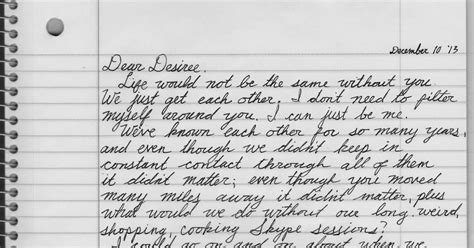 December 10 '13
Dear Desiree,
Life would not be the same without you.
We just get each other, I don't need to filter
myself around you. I can just be me.
We've known each other for so many years,
and even though we didn't keep in
constant contact through all of them
it didn't matter; even though you moved
many miles away it didn't matter, plus
what would we do without our long, weird,
shopping, cooking Skype sessions?
I could go on and on about when we